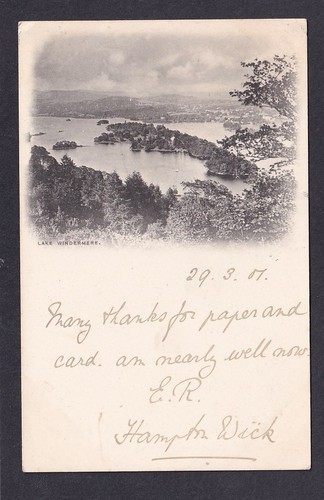 LAKE WINDERMERE.
29.3.01.
Many thanks for paper and
card. am nearly well now.
E.R.
Hampton Wick